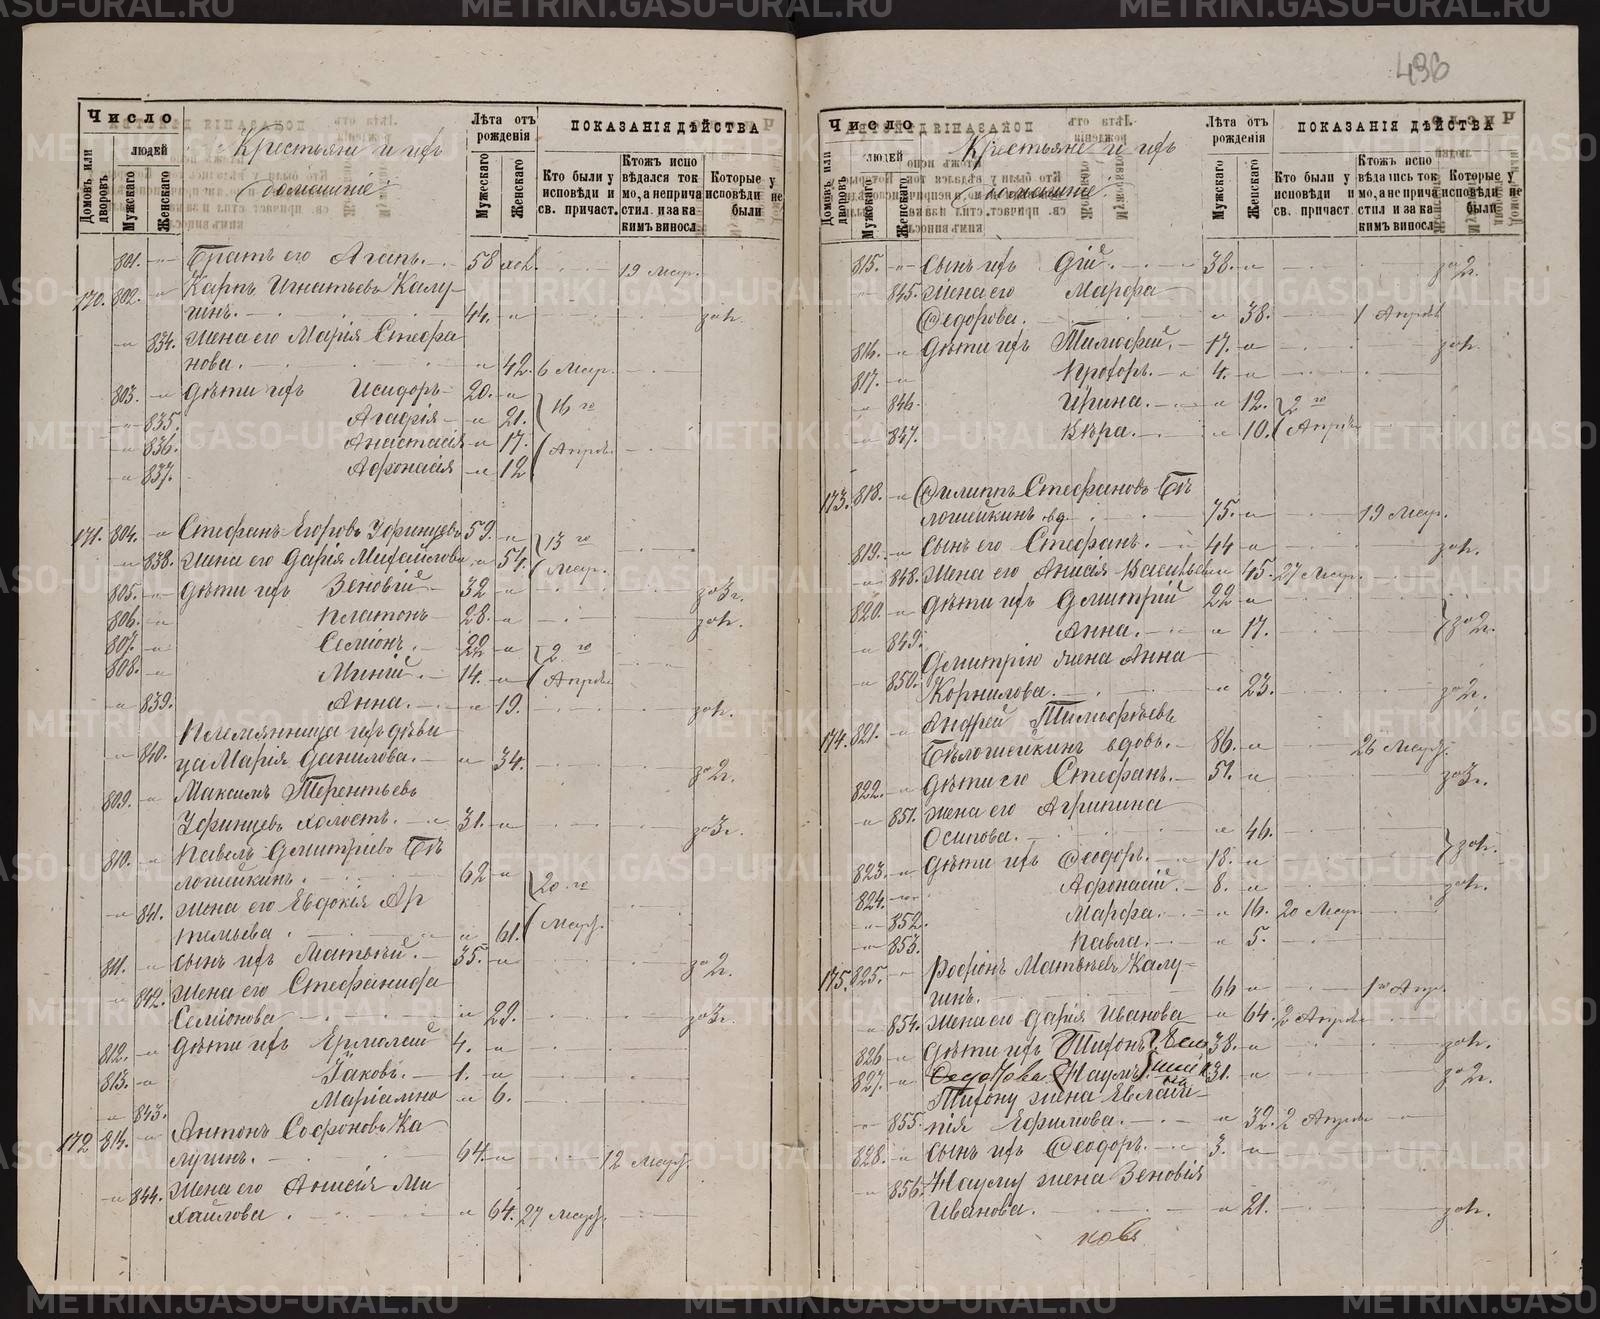 436
Число
людей
Домовъ или дворовъ
Мужскаго
Женскаго
Крестьяне и ихъ
домашніе
Лѣта отъ рожденія
Мужескаго
Женскаго
ПОКАЗАНІЯ ДѢЙСТВА
Кто были у исповѣди и св. причаст.
Ктожъ испо вѣдался ток мо, а неприча стил. и за ка кимъ виносл.
Которые у исповѣди не были
801. Братъ его Агапъ. 58 хол. 19 Мар.
170. 802. Карпъ Игнатьевъ Калу-
гинъ. 44.
834. Жена его Марія Стефа
нова. 42. 6 Мар.
803. Дѣти ихъ Исидоръ 20.
835. Агафія 21. 16 го
836. Анастасія 17. Апрѣл.
837. Афонасія 12
171. 804. Стефанъ Егоровъ Уфинцевъ 59. 13 го
838. Жена его Дарія Михайлова 54. Мар.
805. Дѣти ихъ Зеновій 32 за 3 г.
806. Платонъ 28.
807. Семіонъ. 22 2 го
808. Миній. 14. Апрѣл.
839. Анна. 19.
Племянница ихъ дѣви
840. ца Марія Данилова. 34. за 2 г.
809. Максимъ Терентьевъ
Уфинцевъ холостъ. 31. за 3 г.
810. Павелъ Дмитріевъ Бѣ
логлейкинъ. 62 20 го
841. Жена его Евдокія Ар
темьева 61. Мар.
811. Сынъ ихъ Матвѣй. 35. за 2 г.
842. Жена его Стефанида
Семіонова 29. за 3 г.
812. Дѣти ихъ Ермолай 4.
813. Іаковъ. 1.
843. Маріамна 6.
172 814. Антонъ Софроновъ Ка
лугинъ. 64. 12 Мар.
844. Жена его Анисія Ми
хайлова 64. 27 Мар.
Число
людей
Домовъ или дворовъ
Мужскаго
Женскаго
Крестьяне и ихъ
домашніе
Лѣта отъ рожденія
Мужскаго
Женскаго
ПОКАЗАНІЯ ДѢЙСТВА
Кто были у исповѣди и св. причаст.
Ктожъ испо вѣдались ток мо, а неприча стил. и за ка кимъ виносл.
Которые у исповѣди не были
815. Сынъ ихъ 38. за 2 г.
845. Жена его Марфа
Федорова. 38. 1 Апрѣл
816. Дѣти ихъ Тимофей. 17.
817. Прохоръ. 4.
846. Ирина. 12. 2 го
847. Вѣра. 10. Апрѣл
173. 818. Филиппъ Стефановъ Бѣ
логлейкинъ вд. 75. 19 Мар.
819. Сынъ его Стефанъ. 44
848. Жена его Анисія Васильева 45. 27 Мар.
820. Дѣти ихъ Дмитрій 22
849. Анна. 17. за 2 г.
Дмитрію жена Анна
850. Корнилова. 23. за 2 г.
174. 821. Андрей Тимофѣевъ
Бѣлоглейкинъ вдовъ. 86. 26 Мар.
822. Дѣти его Стефанъ. 51. за 3 г.
851. Жена его Агрипина
Осипова. 46.
823. Дѣти ихъ Феодоръ. 18.
824. Афонасій. 8.
852. Марфа. 16. 20 Мар.
853. Павла. 5.
175. 825. Родіонъ Матвѣевъ Калу-
гинъ. 66 1 го Апр.
854. Жена его Дарія Иванова 64. 2 Апрѣл
826 Дѣти ихъ Тихонъ 38.
827. Наумъ 31. за 2 г.
Тихону жена Евлам-
855. пія Ефимова. 32. 2 Апрѣл
828. Сынъ ихъ Феодоръ. 3.
856. Науму жена Зеновія
Иванова. 21.